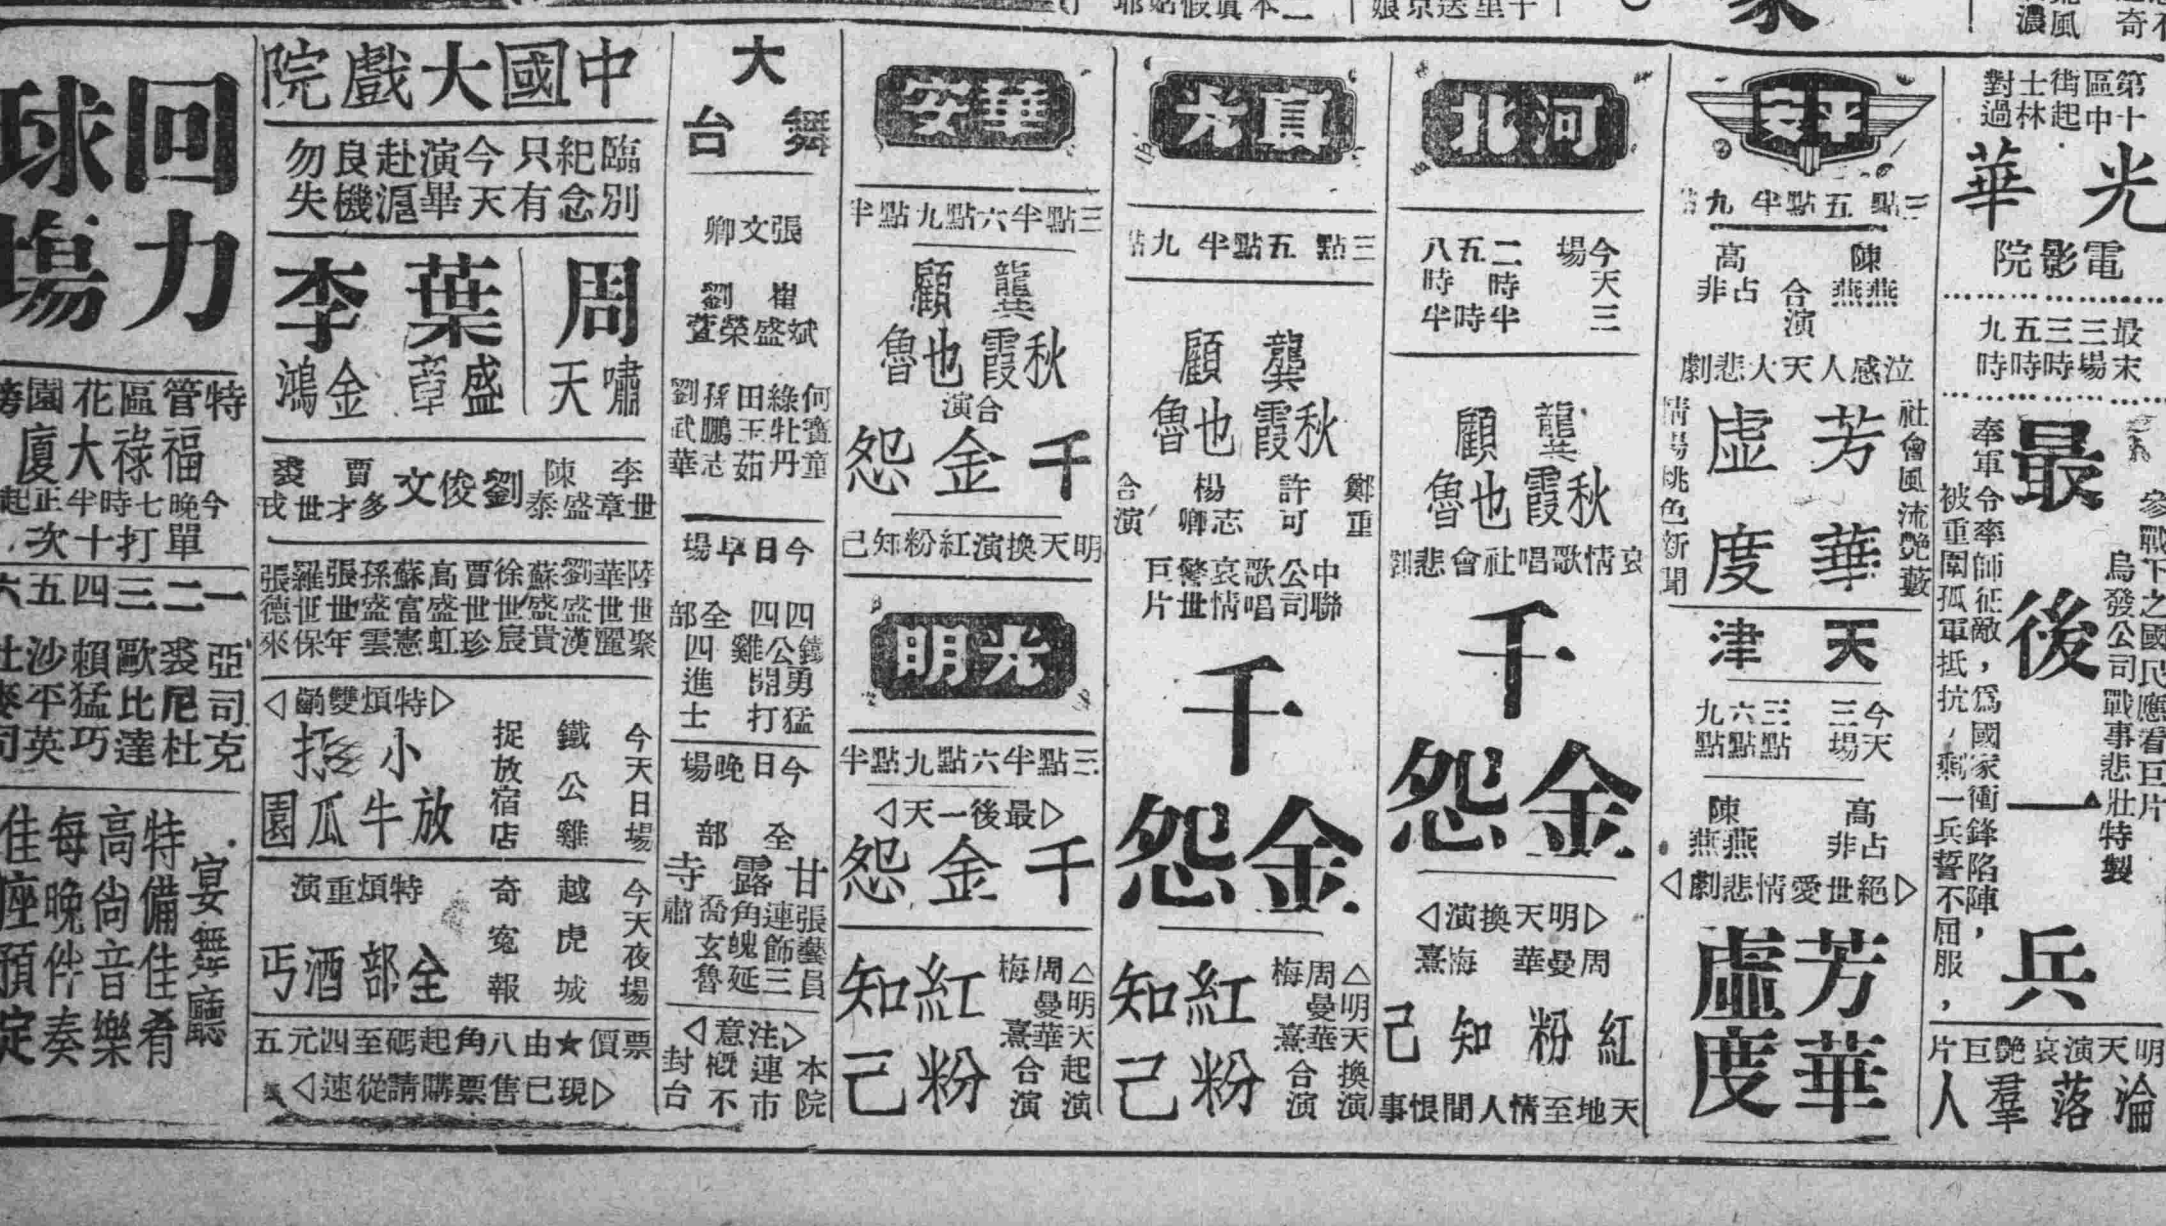 第十區中街起士林對過
光華
電影院
最末三場三時五時九時
最後一兵
參戰下之國民應看巨片
烏發公司戰事悲壯特製
奉軍令率師征敵，爲國家衝鋒陷陣，
被重圍孤軍抵抗，剩一兵誓不屈服，
明天演哀艷巨片
淪落羣人
平安
三點五點半九點
陳燕燕
高占非
合演
泣感人天大悲劇
社會風流艷藪
芳華虛度
情場桃色新聞
天津
今天三場
三點六點九點
高占非
陳燕燕
絕世愛情悲劇
芳華虛度
河北
今天三場
二時半五時半八時半
龔秋霞
顧也魯
哀情歌唱社會悲劇
千金怨
明天換演
周曼華 梅熹
紅粉知己
天地至情人間恨事
真光
三點五點半九點
龔秋霞
顧也魯
鄭重
許可
楊志卿
合演
中聯公司歌唱哀情警世巨片
千金怨
△明天換演
周曼華
梅熹
合演
紅粉知己
華安
三點半六點九點半
龔秋霞
顧也魯
合演
千金怨
明天換演紅粉知己
光明
三點半六點九點半
最後一天
千金怨
△明天起演
周曼華
梅熹
合演
紅粉知己
大舞台
張文卿
崔盛斌
劉榮萱
何寶童
綠牡丹
田玉茹
孫鵬志
劉武華
今日早場
鐵公雞
四四
勇猛開打
全部
四進士
今日晚場
全部
甘露寺
張藝員連飾三角
喬玄魏延魯肅
注意
本院連市概不封台
中國大戲院
臨別紀念只有今天演畢赴滬良機勿失
周嘯天
葉盛章
李金鴻
李世章
陳盛泰
劉俊文
賈多才
裘世戎
陸世聚
華世麗
劉盛漢
蘇盛貴
徐世宸
賈世珍
高盛虹
蘇富憲
孫盛雲
張世年
羅世保
張德來
特煩雙齣
今天日場
鐵公雞
捉放宿店
小放牛
打瓜園
今天夜場
越虎城
奇冤報
特煩重演
全部酒丐
票價★由八角起碼至四元五
現已售票購請從速
回力球場
特管區花園旁
福祿大廈
今晚七時半正起
單打十次
一二三四五六
亞司克
裘尼杜
歐比達
賴猛巧
沙平英
宴舞廳
特備佳肴
高尙音樂
每晚伴奏
佳座預定